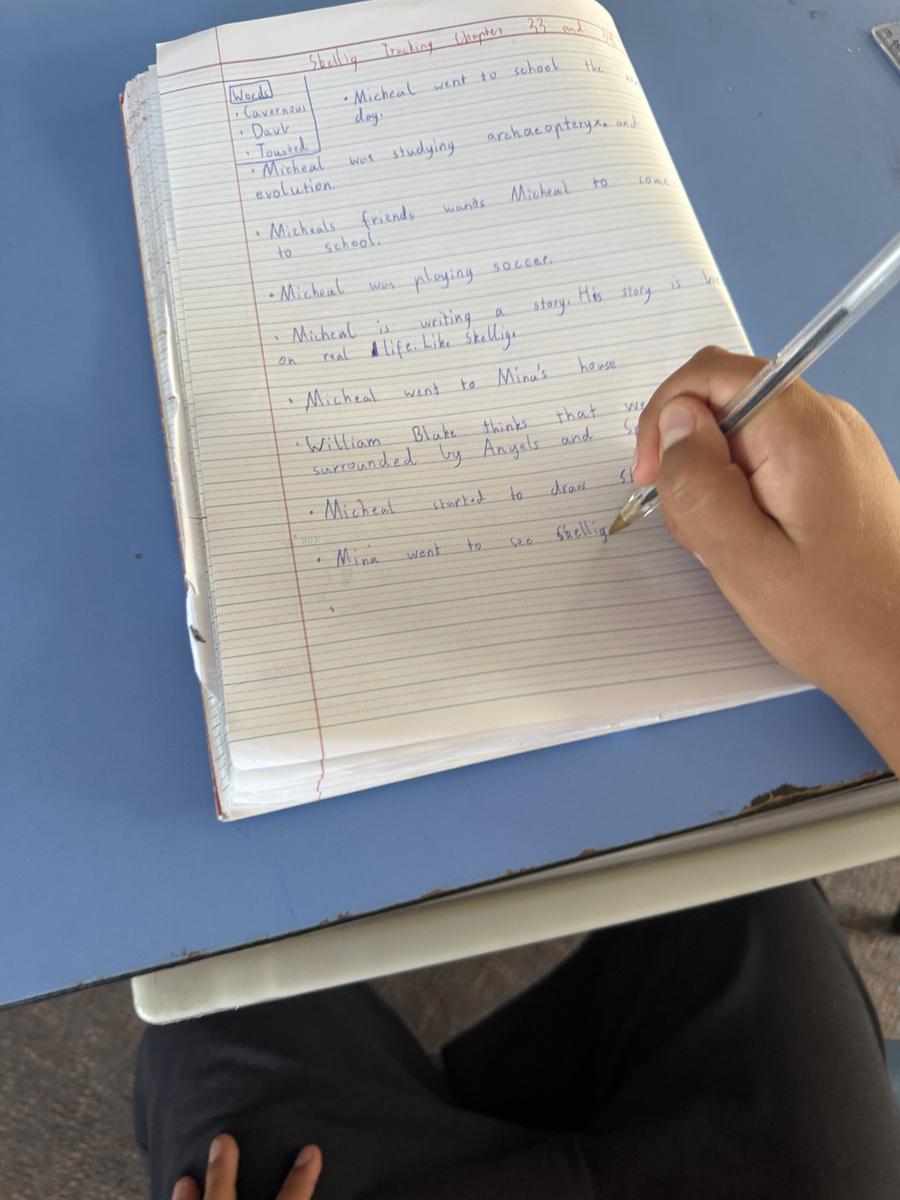 Skellig Tracking Chapter 33 and
Words
• Cavernous
• Daub
• Tousted
• Micheal went to school the
day.
• Micheal was studying archaeopteryx. and
evolution.
• Micheals friends wands Micheal to come
to school.
• Micheal was playing soccer.
• Micheal is writing a story. His story is
on real life. Like Skellig.
• Micheal went to Mina's house
• William Blake thinks that
surrounded by Angels and
• Micheal started to draw
• Mina went to see Skellig